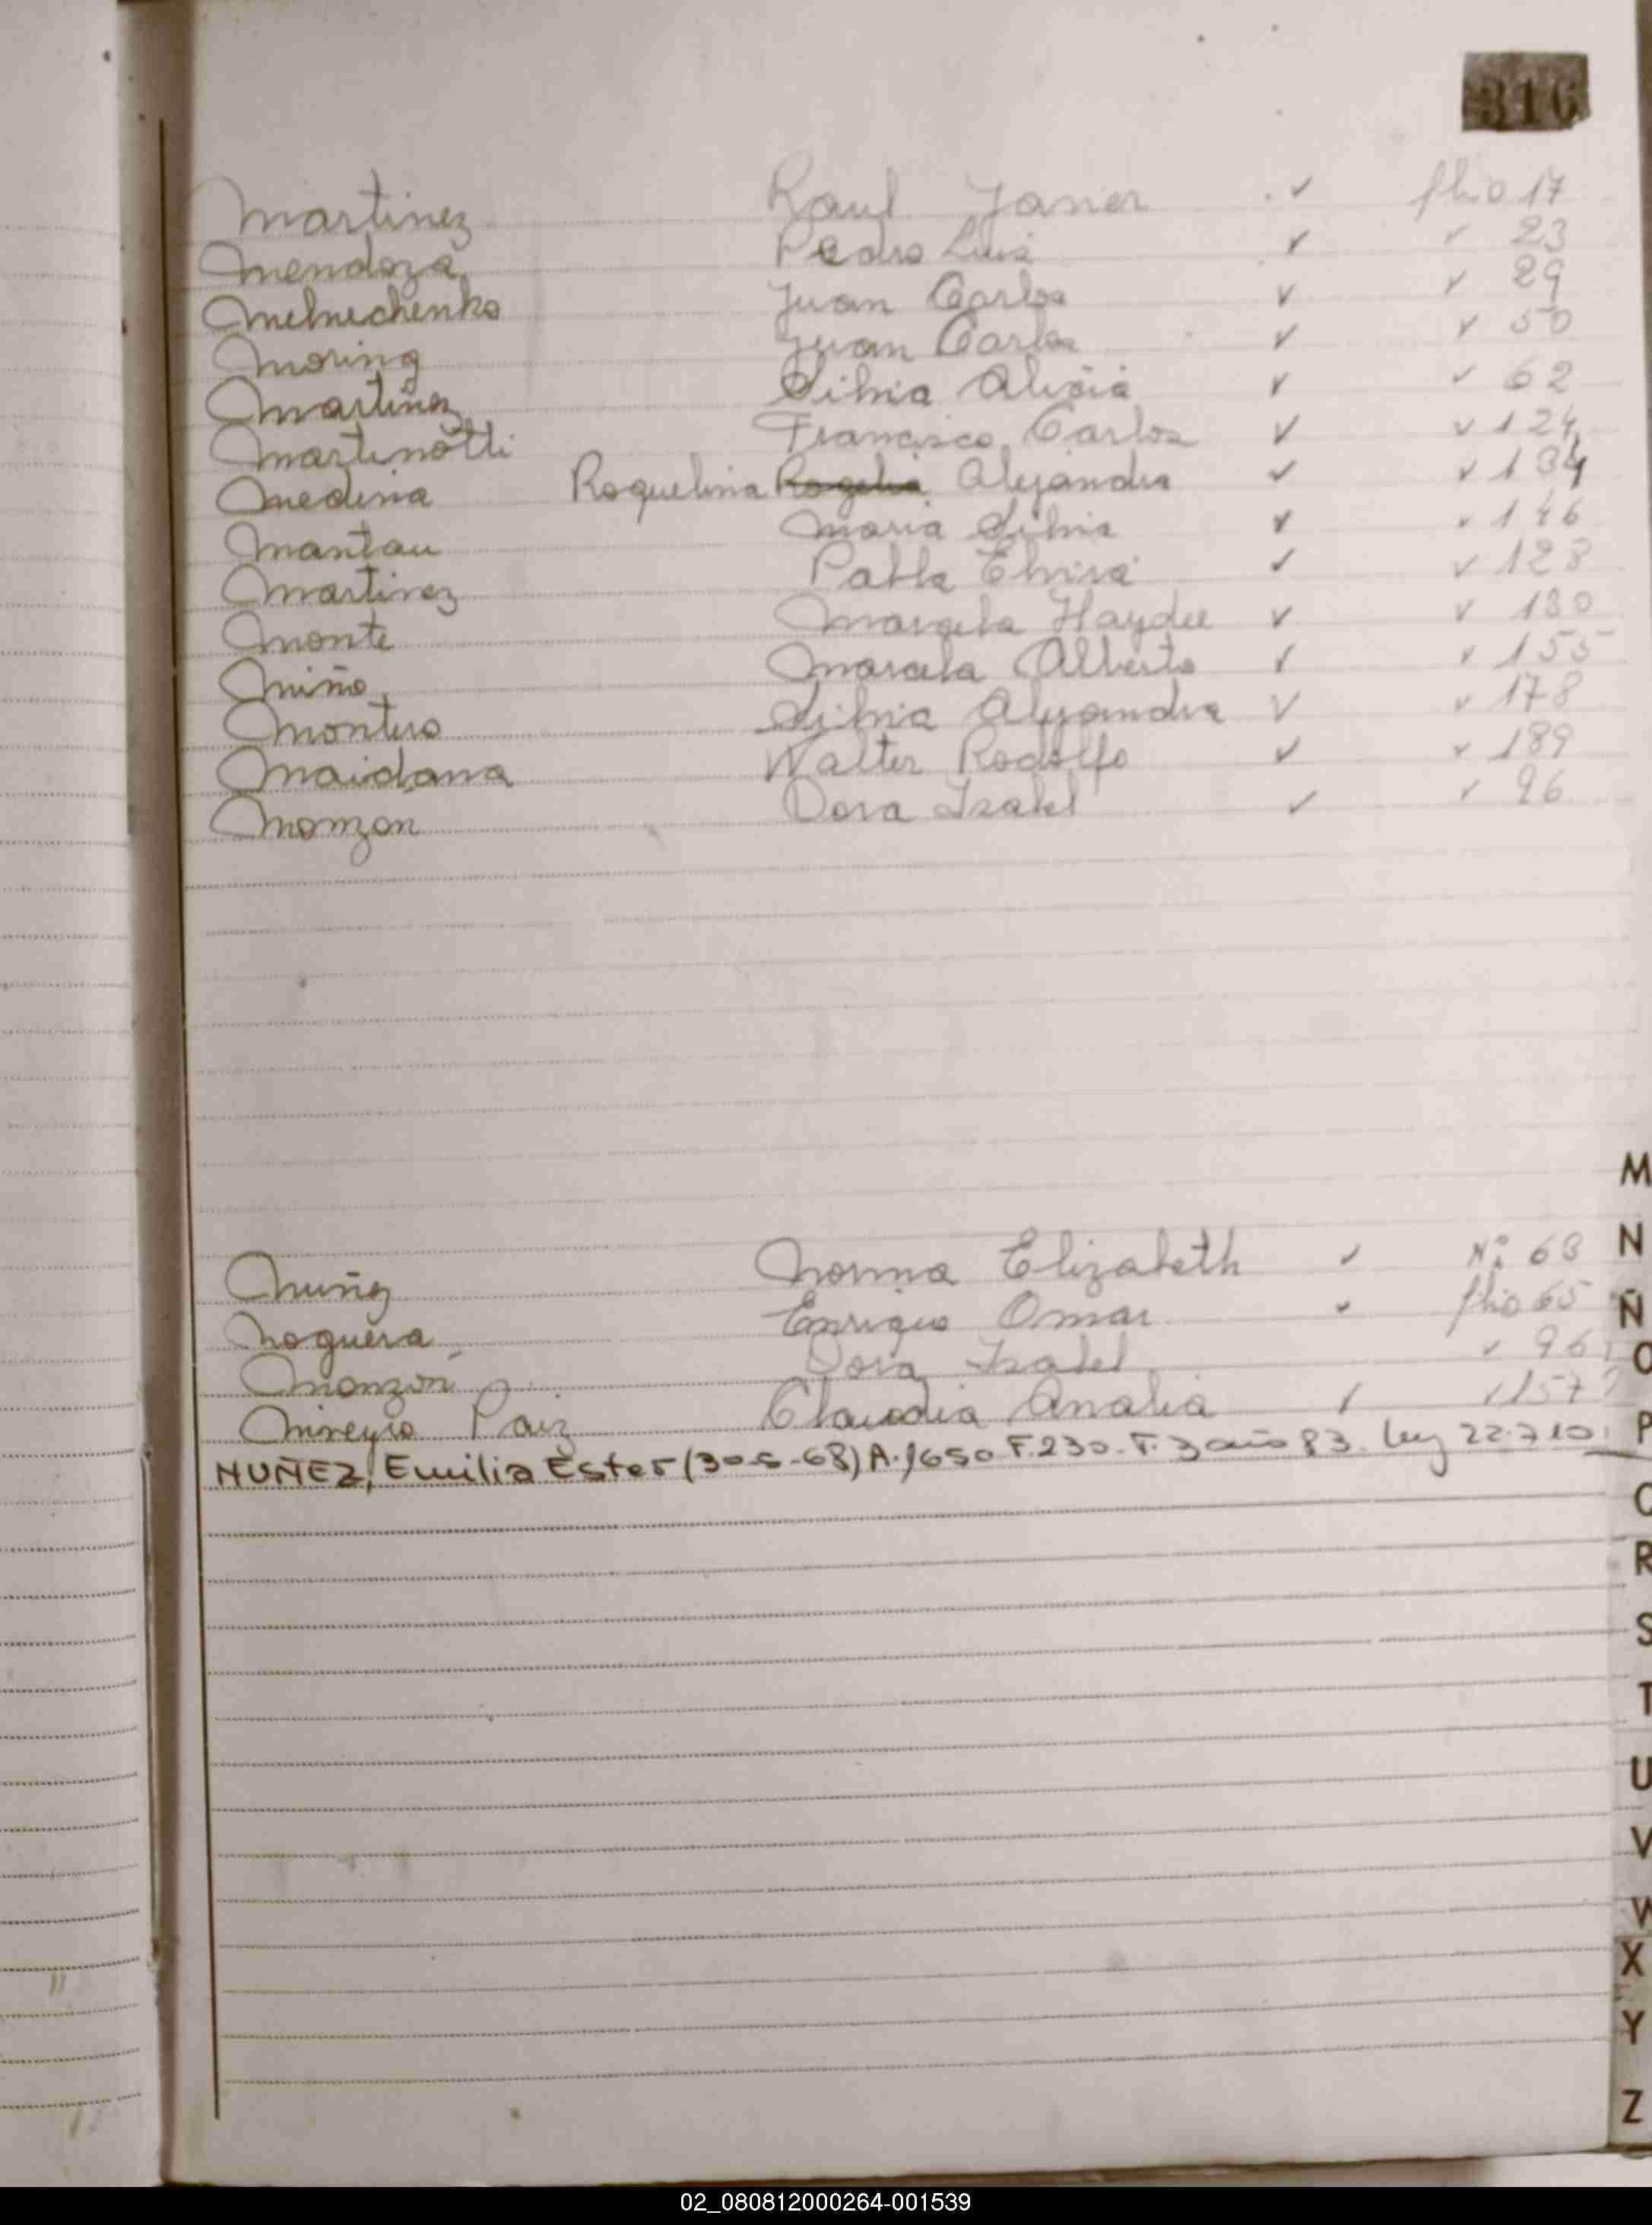 316
Martinez Raul Javier ✓ folio 17
Mendoza Pedro Luis ✓ ✓ 23
Melnechenko Juan Carlos ✓ ✓ 29
Moring Juan Carlos ✓ ✓ 50
Martinez Silvia Alicia ✓ ✓ 62
Martinotti Francisco Carlos ✓ ✓ 124
Medina Roquelina Rogelia Alejandra ✓ ✓ 134
Mantau Maria Silvia ✓ ✓ 146
Martinez Pabla Elvira ✓ ✓ 128
Monte Marcela Haydee ✓ ✓ 130
Miño Marcela Alberto ✓ ✓ 155
Montero Silvia Alejandra ✓ ✓ 178
Maidana Walter Rodolfo ✓ ✓ 189
Monzón Dora Isabel ✓ ✓ 96
Nuñez Norma Elizabeth ✓ Nº 68
Noguera Enrique Omar ✓ folio 65
Monzón Dora Isabel ✓ 96
Claudia Analia ✓ ✓ 157
NUÑEZ, Emilia Ester (30-5-68) A. 1650 F. 230. T. 3 año 83. ley 22.710.
M
N
Ñ
O
P
Q
R
S
T
U
V
W
X
Y
Z
02_080812000264-001539